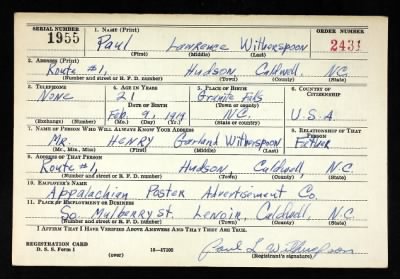 SERIAL NUMBER 1. NAME (Print) ORDER NUMBER
1955 Paul Lawrence Witherspoon 2431
(First) (Middle) (Last)
2. ADDRESS (Print)
Route #1, Hudson, Caldwell, N.C.
(Number and street or R. F. D. number) (Town) (County) (State)
3. TELEPHONE 4. AGE IN YEARS 5. PLACE OF BIRTH 6. COUNTRY OF CITIZENSHIP
None 21 Granite Falls
DATE OF BIRTH (Town or county)
Feb. 9, 1919 N.C. U.S.A.
(Exchange) (Number) (Mo.) (Day) (Yr.) (State or country)
7. NAME OF PERSON WHO WILL ALWAYS KNOW YOUR ADDRESS 8. RELATIONSHIP OF THAT PERSON
Mr. Henry Garland Witherspoon Father
(Mr., Mrs., Miss) (First) (Middle) (Last)
9. ADDRESS OF THAT PERSON
Route #1, Hudson, Caldwell, N.C.
(Number and street or R. F. D. number) (Town) (County) (State)
10. EMPLOYER'S NAME
Appalachian Poster Advertisement Co.
11. PLACE OF EMPLOYMENT OR BUSINESS
So. Mulberry st. Lenoir, Caldwell, N.C.
(Number and street or R. F. D. number) (Town) (County) (State)
I AFFIRM THAT I HAVE VERIFIED ABOVE ANSWERS AND THAT THEY ARE TRUE.
REGISTRATION CARD
D. S. S. Form 1 16—17105 Paul L. Witherspoon
(Registrant's signature)